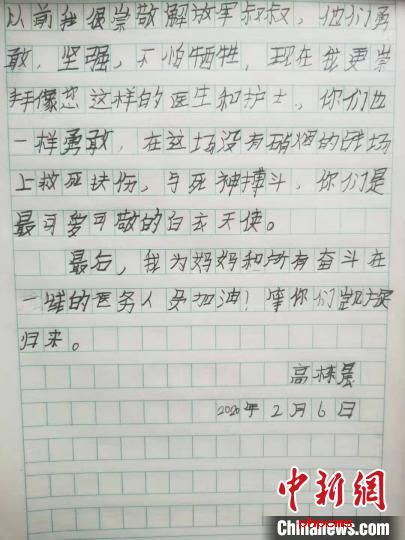 以前我很崇敬解放军叔叔，他们勇
敢，坚强，不怕牺牲，现在我更崇
拜像您这样的医生和护士，你们也
一样勇敢，在这场没有硝烟的战场
上救死扶伤，与死神搏斗，你们是
最可爱可敬的白衣天使。
最后，我为妈妈和所有奋斗在
一线的医务人员加油！等你们凯旋
归来。
高栋晨
2020年2月6日
中新网
Chinanews.com